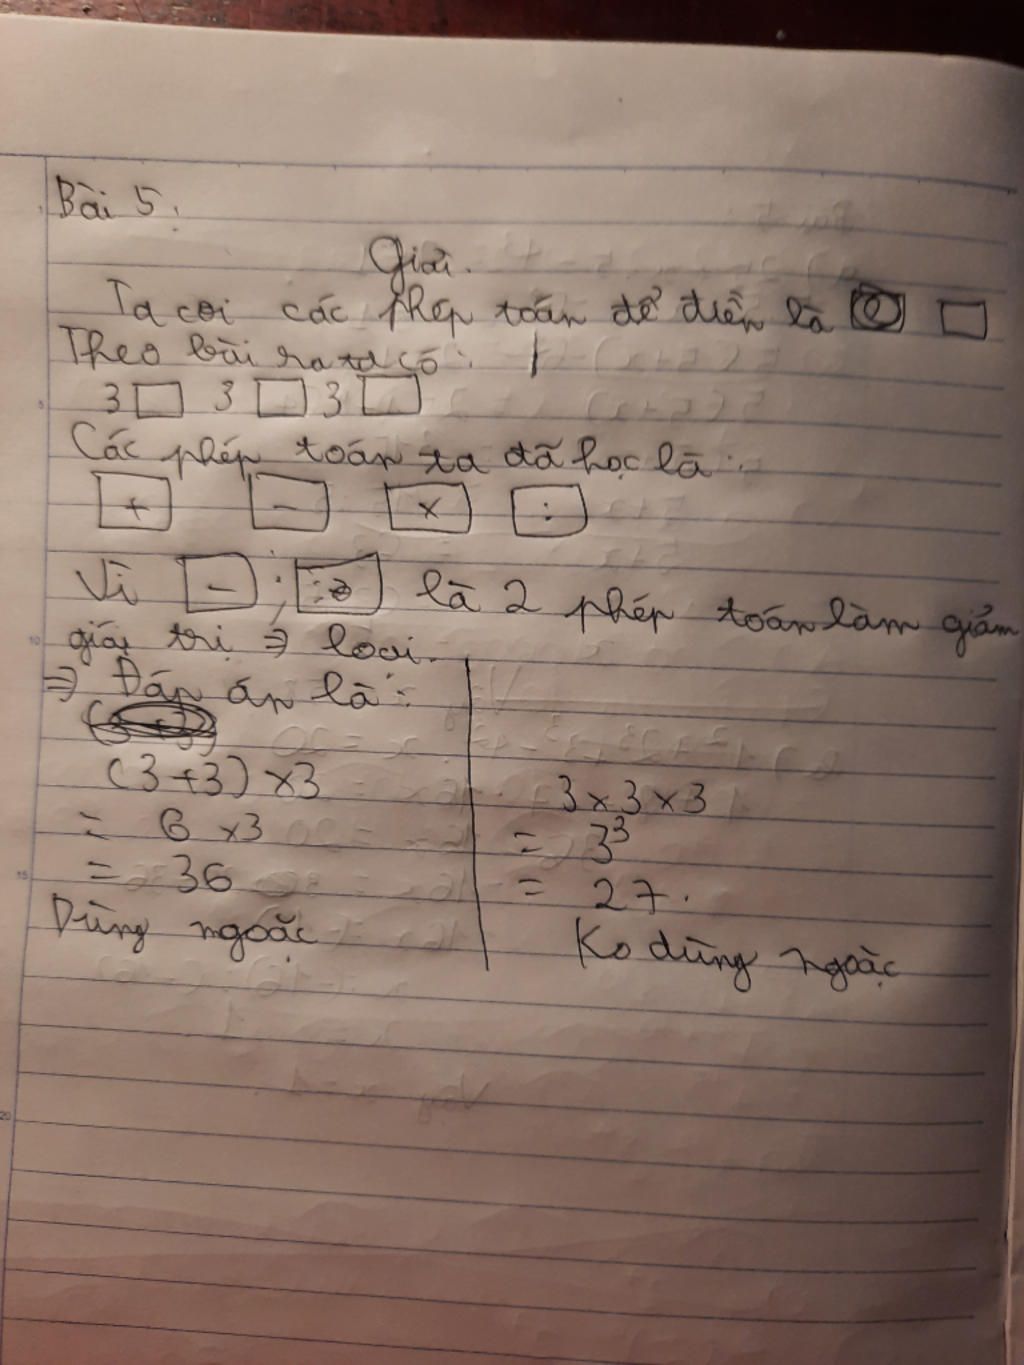 Bài 5:
Giải.
Ta coi các phép toán để điền là □
Theo bài ra ta có:
3 □ 3 □ 3 □
Các phép toán ta đã học là:
+ - × :
Vì - ; : là 2 phép toán làm giảm
giá trị ⇒ loại.
⇒ Đáp án là:
(3+3) ×3
= 6 ×3
= 36
Dùng ngoặc
3 × 3 × 3
= 3³
= 27.
Ko dùng ngoặc